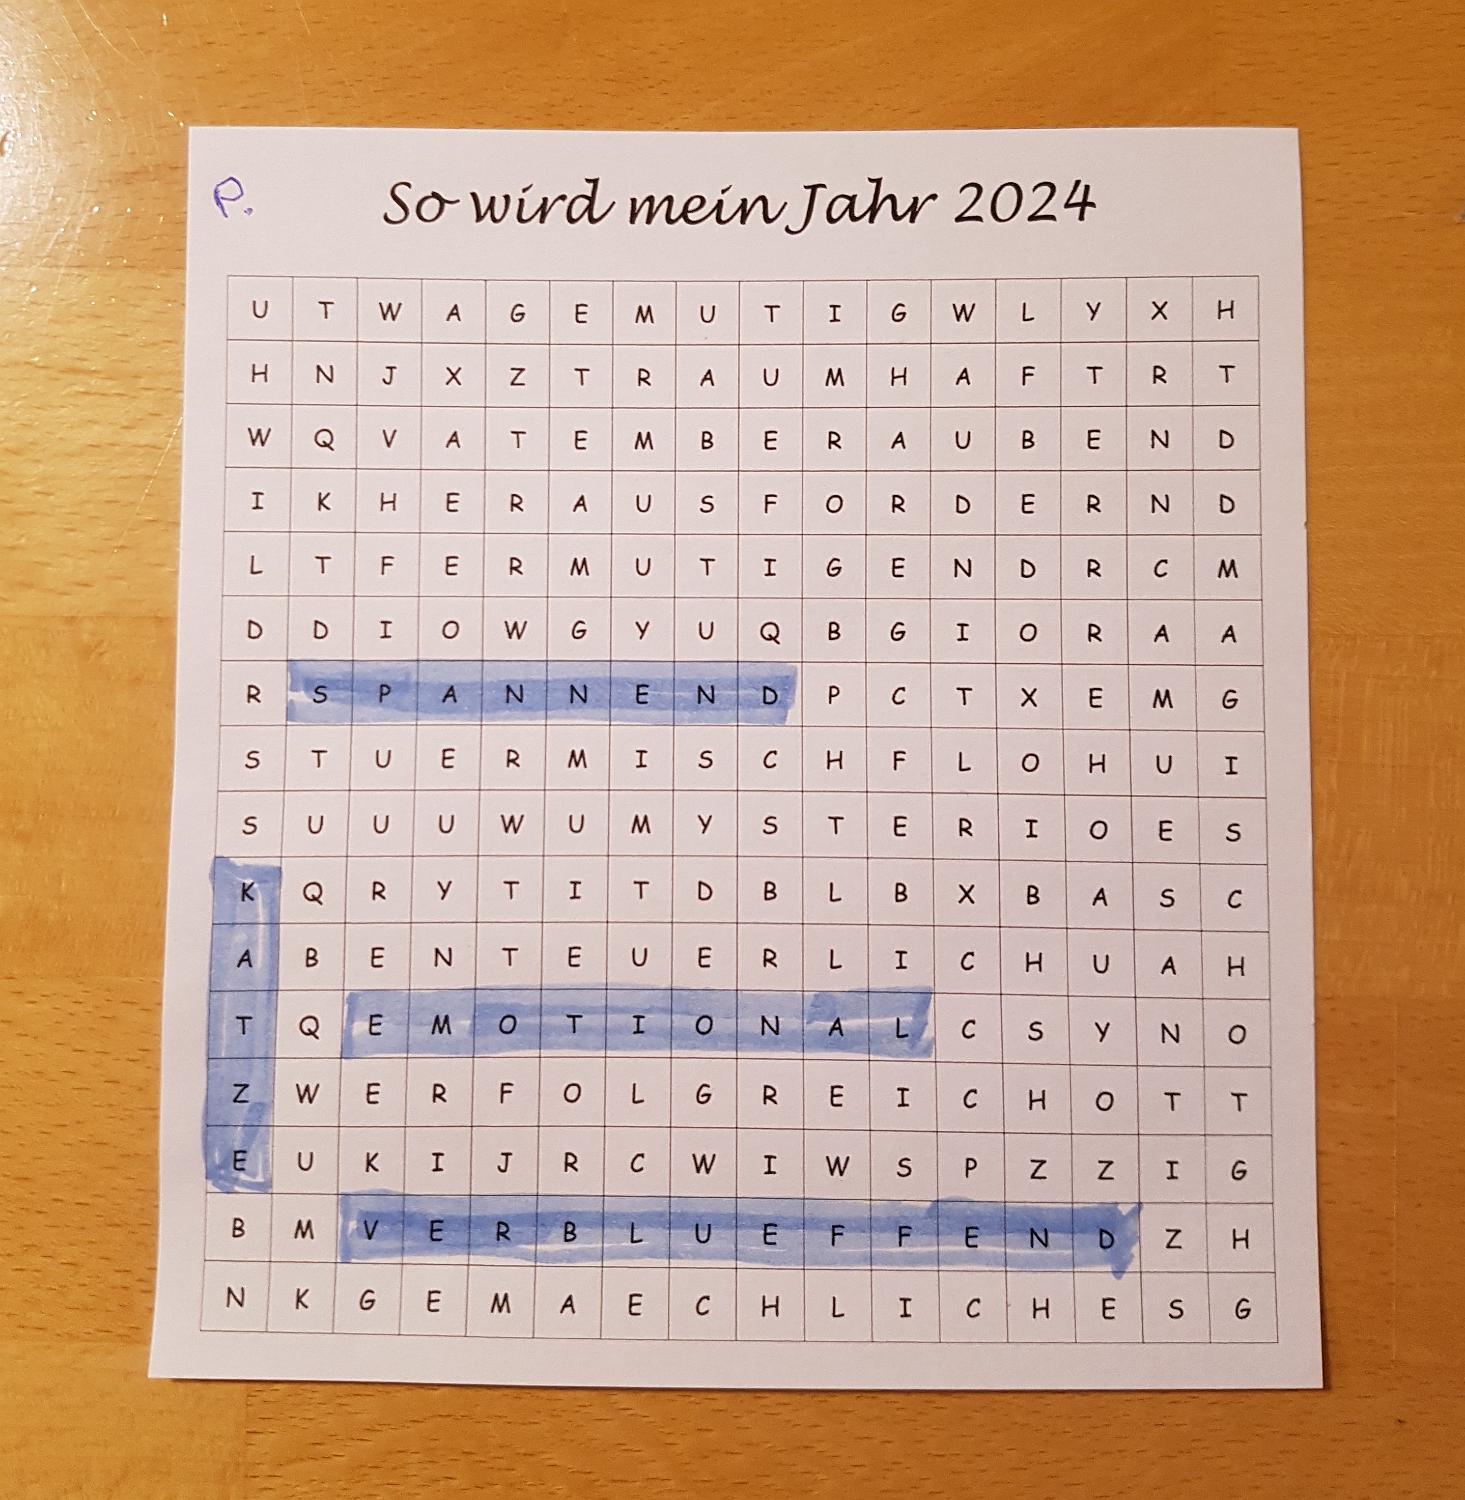 P.
So wird mein Jahr 2024
U T W A G E M U T I G W L Y X H
H N J X Z T R A U M H A F T R T
W Q V A T E M B E R A U B E N D
I K H E R A U S F O R D E R N D
L T F E R M U T I G E N D R C M
D D I O W G Y U Q B G I O R A A
R S P A N N E N D P C T X E M G
S T U E R M I S C H F L O H U I
S U U U W U M Y S T E R I O E S
K Q R Y T I T D B L B X B A S C
A B E N T E U E R L I C H U A H
T Q E M O T I O N A L C S Y N O
Z W E R F O L G R E I C H O T T
E U K I J R C W I W S P Z Z I G
B M V E R B L U E F F E N D Z H
N K G E M A E C H L I C H E S G